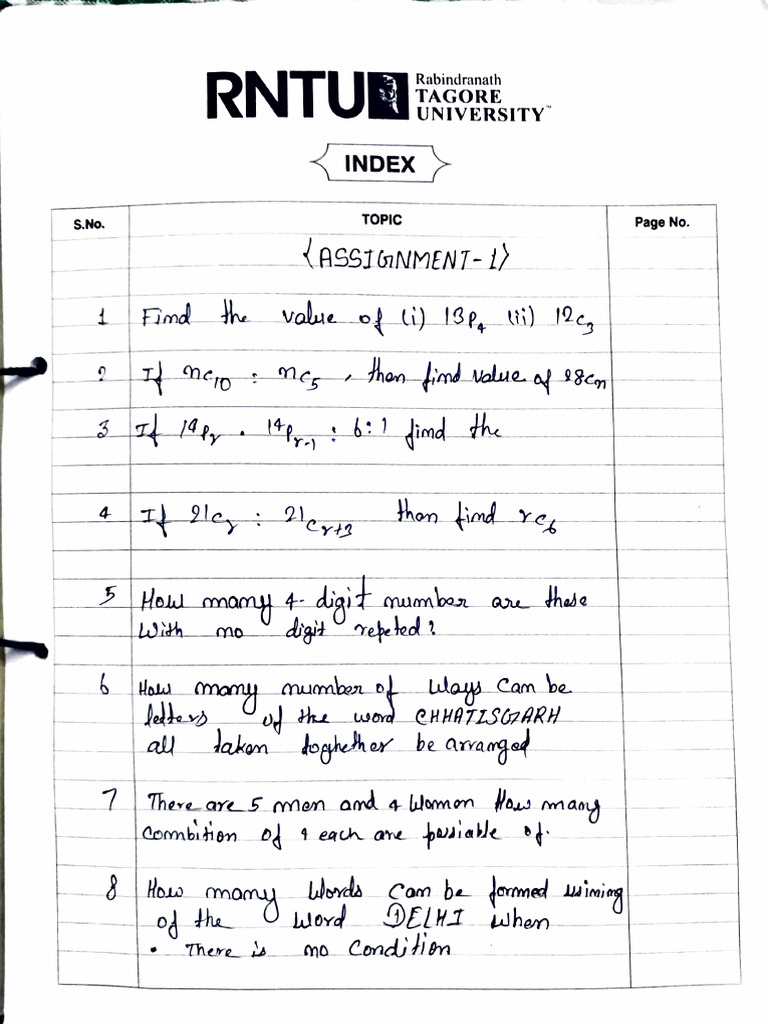 RNTU Rabindranath
TAGORE
UNIVERSITY™
INDEX
S.No. TOPIC Page No.
<ASSIGNMENT-1>
1 Find the value of (i) 13P4 (ii) 12C3
2 If nC10 : nC5, then find value of 28Cn
3 If 14Pr . 14Pr-1 : 6:1 find the
4 If 21Cr : 21Cr+3 then find rC6
5 How many 4-digit number are these
With no digit repeted?
6 How many number of Ways can be
letters of the word CHHATISGARH
all taken toghether be arranged
7 There are 5 men and 4 Women How many
Combition of 4 each are possiable of.
8 How many Words can be formed usining
of the word DELHI when
• There is no Condition